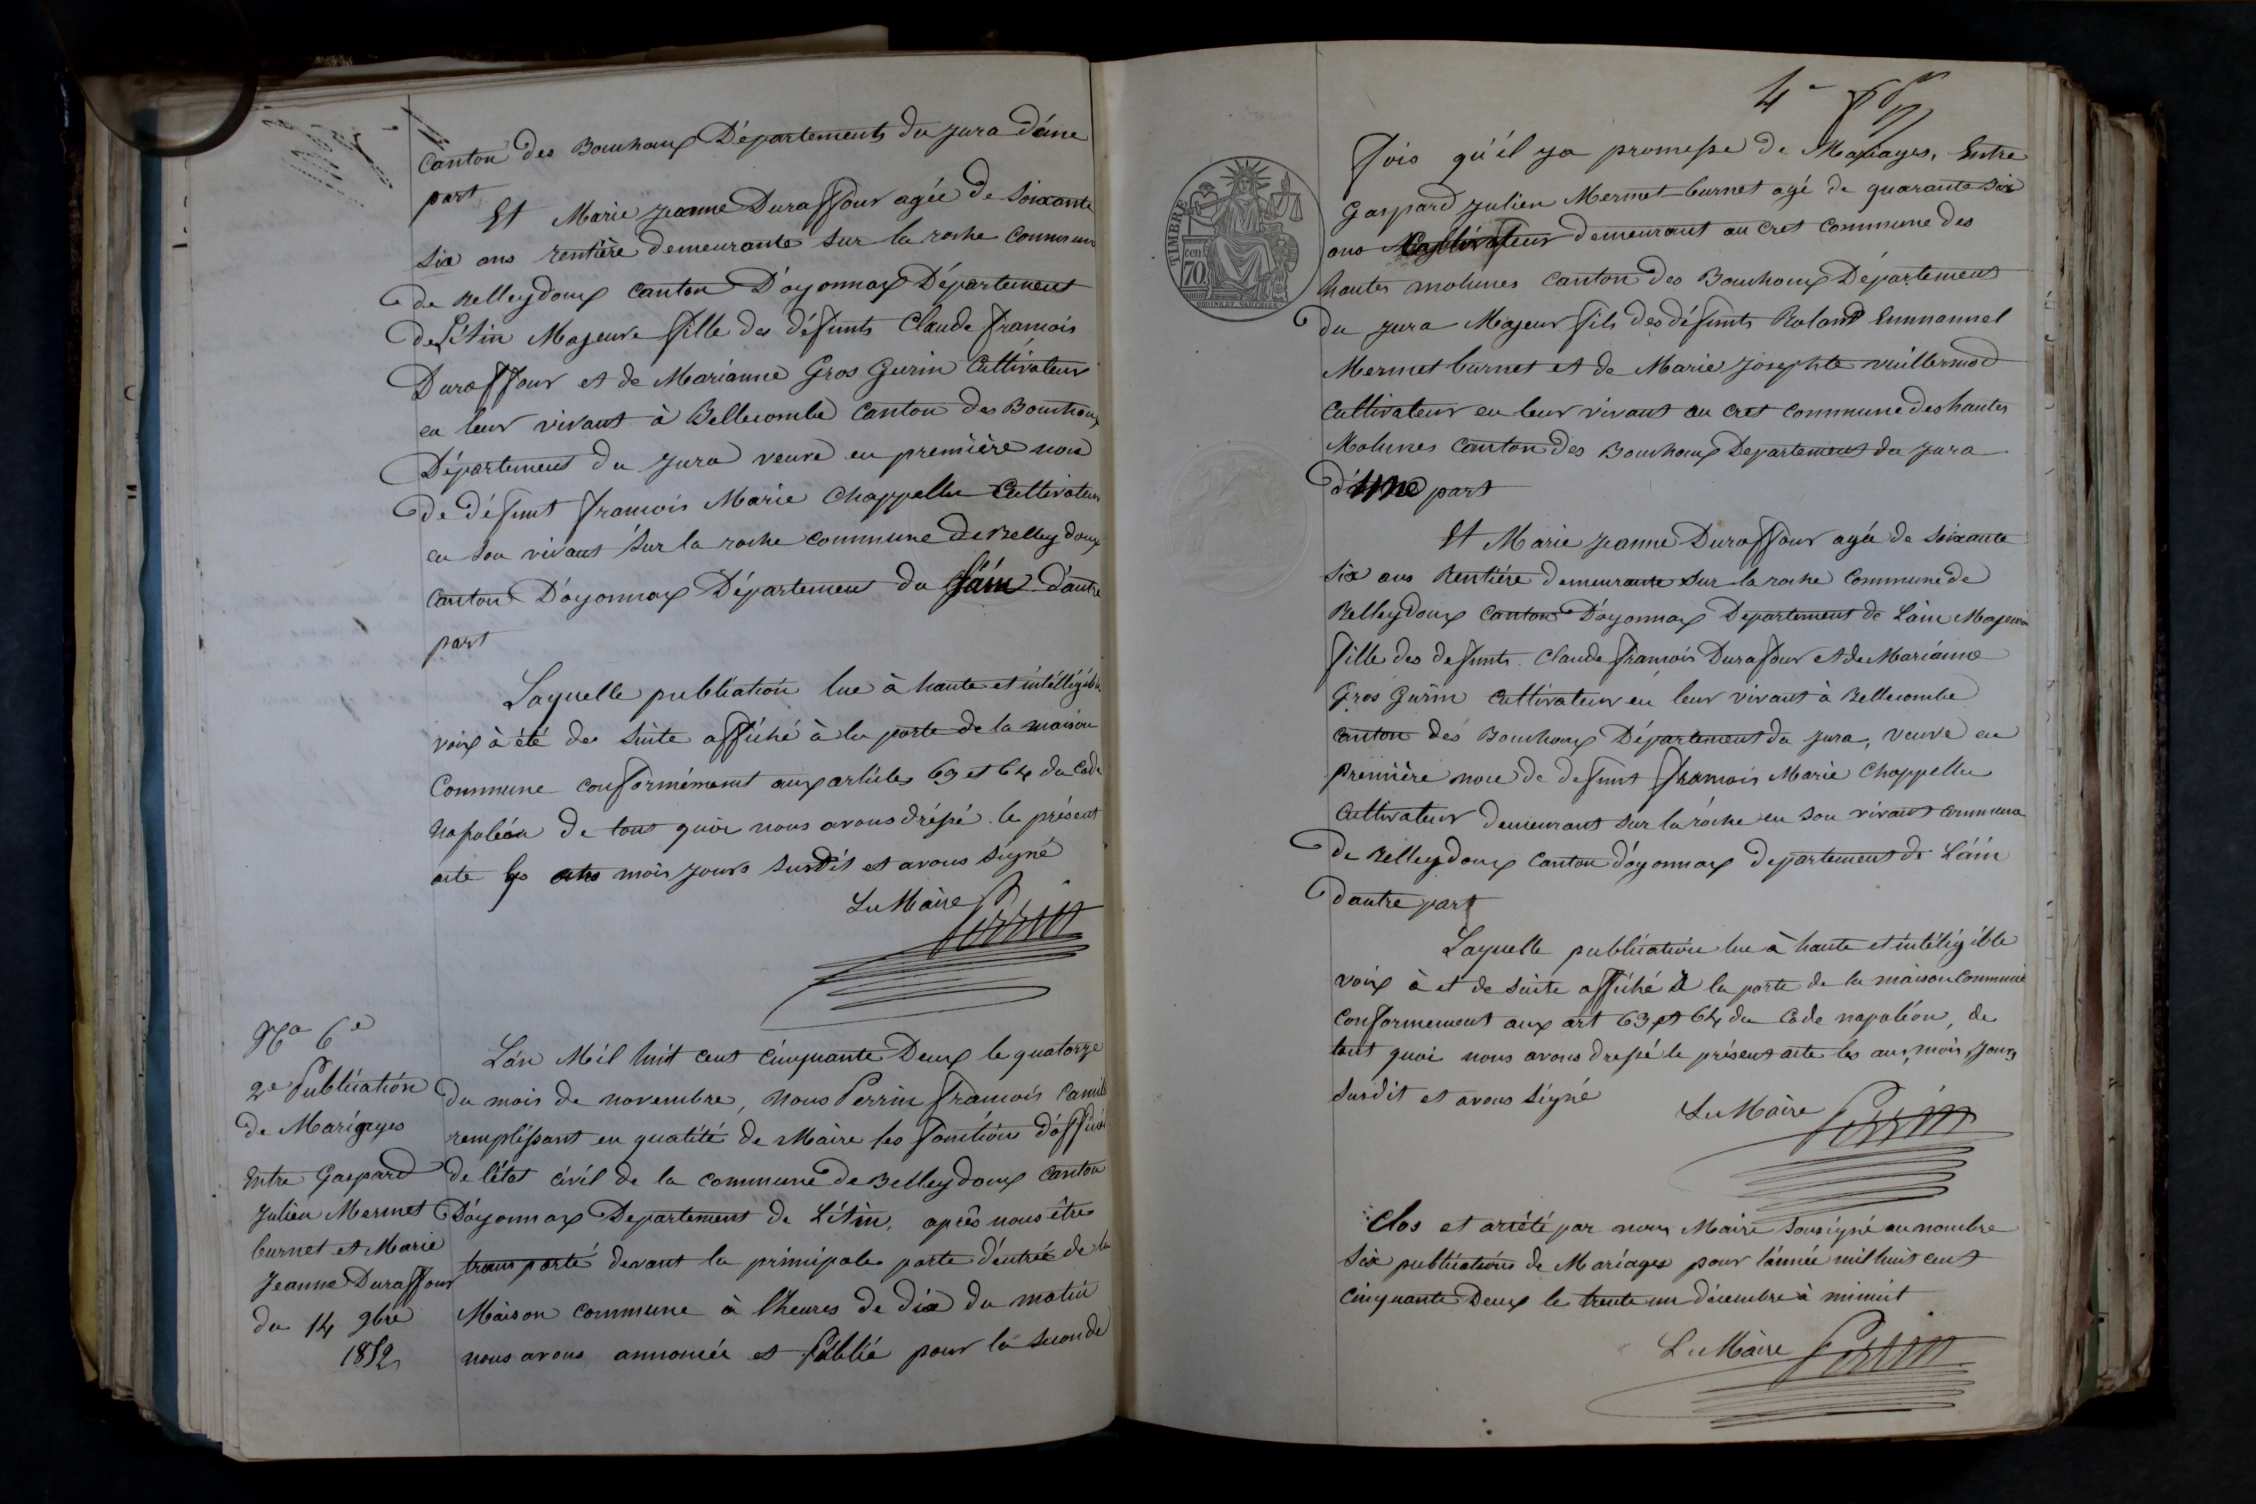 canton des Bouchoux Départements du jura d'une
part
Et Marie jeanne Duraffour agée de soixante
six ans rentière demeurante sur la roche commune
de Belleydoux canton D'oyonnax Département
de L'Ain Majeure fille des défunts Claude françois
Duraffour et de Marianne Gros Gurin Cultivateur
en leur vivant à Bellecombe canton des Bouchoux
Département du jura veuve en première noce
de défunt françois Marie Chappellu Cultivateur
en son vivant sur la roche commune de Belleydoux
canton D'oyonnax Département du l'áin d'autre
part
Laquelle publication lue à haute et intélligible
voix à été de suite affiché à la porte de la maison
Commune conformément aux articles 63 et 64 du Code
Napoléon de tout quoi nous avons dréssé le présent
acte les ans mois jours susdit et avons signé
Le Maire Perrin
No 6e
2e Publication
de Mariages
Entre Gaspard
Julien Mermet
burnet et Marie
Jeanne Duraffour
du 14 9bre
1852
L'an Mil huit cent cinquante Deux le quatorze
du mois de novembre, nous Perrin françois Camil
remplissant en qualité de Maire les fonctions d'officier
de l'état civil de la commune de Belleydoux canton
D'oyonnax Departement de L'Ain, après nous être
transporté devant la principale porte d'entrée de la
Maison commune à l'heures de dix du matin
nous avons annoncée et publié pour la seconde
4e
TIMBRE
70
fois qu'il y a promesse de Mariages, Entre
Gaspard Julien Mermet burnet agé de quarante six
ans Cultivateur demeurant au cret commune des
hautes molunes canton des Bouchoux Département
du jura Majeur fils des défunts Roland Emmanuel
Mermet burnet et de Marie josephte vuillermod
cultivateur en leur vivant au cret commune des hautes
Molunes canton des Bouchoux Departement du jura
d'une part
Et Marie jeanne Duraffour agée de soixante
six ans Rentière demeurante sur la roche commune de
Belleydoux canton D'oyonnax Departement de L'ain Majeure
fille des defunts Claude françois Duraffour et de Marianne
Gros Gurin cultivateur en leur vivant à Bellecombe
canton des Bouchoux Département du jura, veuve en
première noce de defunt françois Marie Chappellu
Cultivateur demeurant sur la roche en son vivant commune
de Belleydoux canton d'oyonnax departement de L'áin
d'autre part
Laquelle publication lue à haute et intéligible
voix à et de suite affiché à la porte de la maison commune
conformement aux art 63 et 64 du Code napoléon, de
tout quoi nous avons dressé le présent acte les ans, mois, jours
susdit et avons signé
Le Maire Perrin
Clos et arrêté par nous Maire sousigné au nombre
six publications de Mariages pour l'année mil huit cent
cinquante Deux le trente un décembre à minuit
Le Maire Perrin